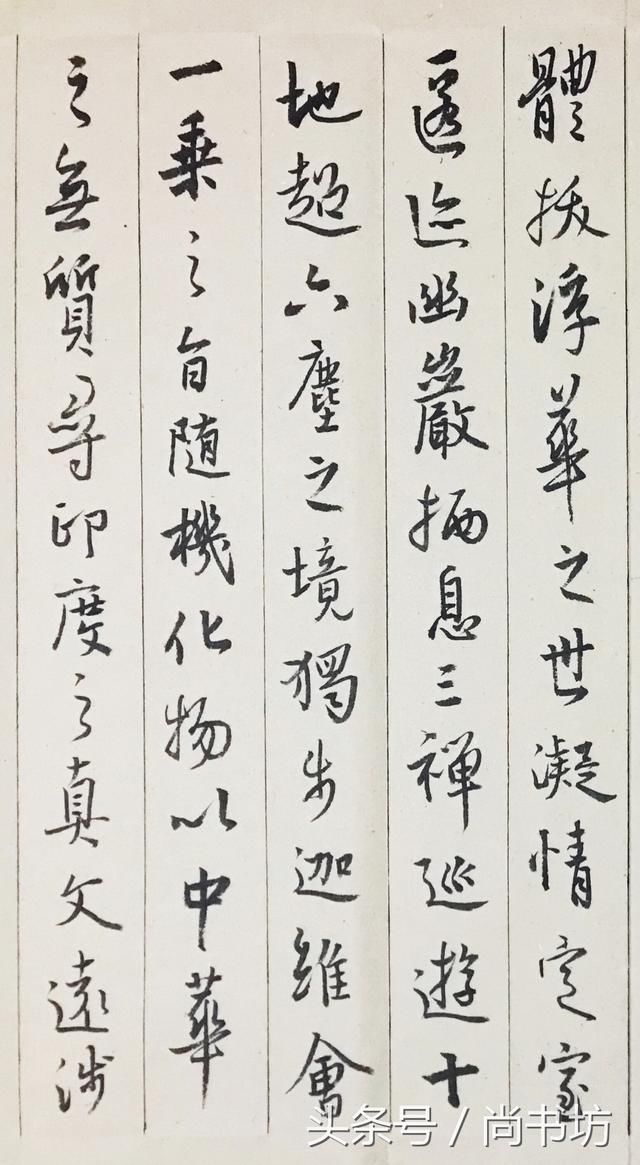 體拔浮華之世凝情定室
匿迹幽巖栖息三禪巡遊十
地超六塵之境獨步迦維會
一乘之旨随機化物以中華
之無質尋印度之真文遠涉
头条号 / 尚书坊